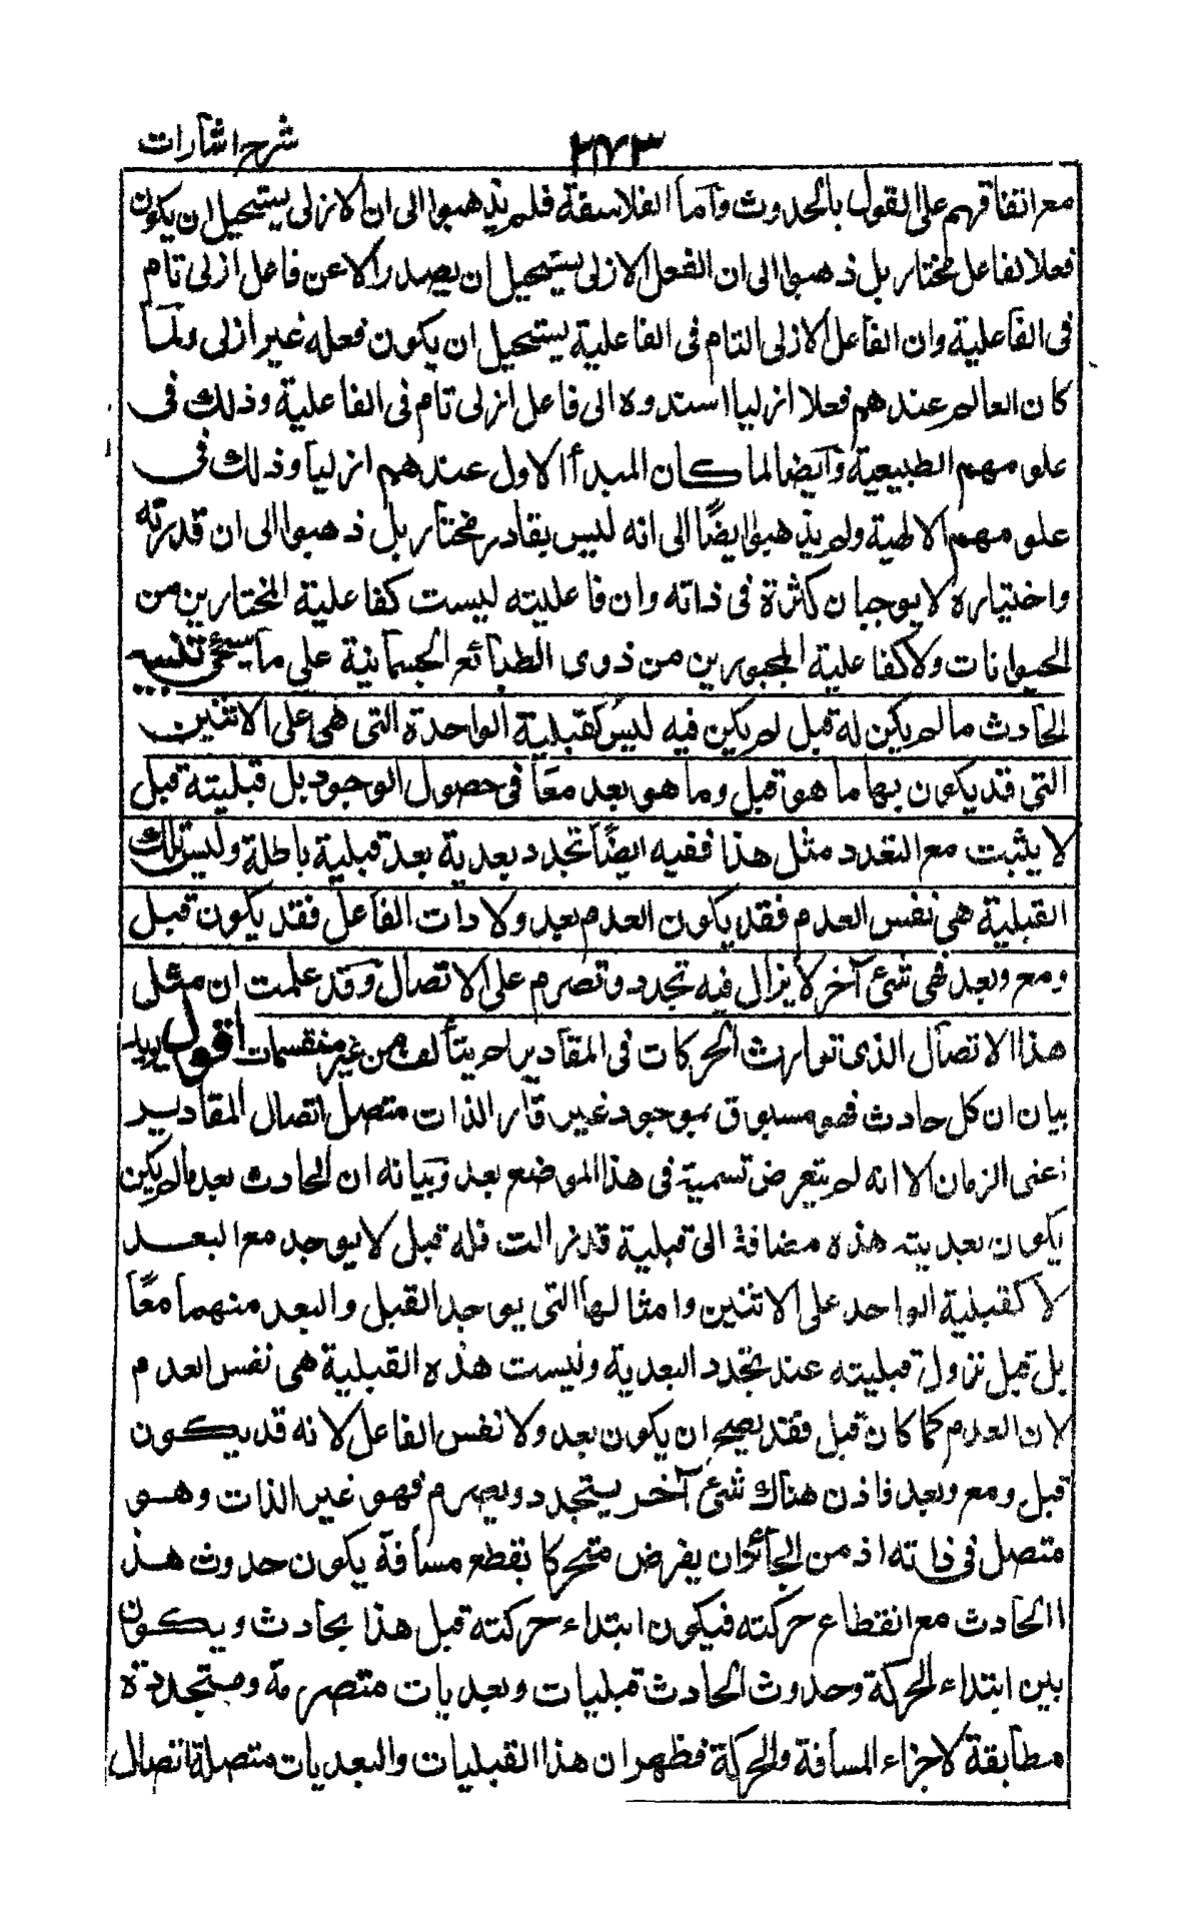 شرح اشارات
٢٧٣
مع اتفاقهم على القول بالحدوث واما الفلاسفة فلم يذهبوا الى ان الازلى يستحيل ان يكون
فعلا لفاعل مختار بل ذهبوا الى ان الفعل الازلى يستحيل ان يصدر الا عن فاعل ازلى تام
فى الفاعلية وان الفاعل الازلى التام فى الفاعلية يستحيل ان يكون فعله غير ازلى ولما
كان العالم عندهم فعلا ازليا اسندوه الى فاعل ازلى تام فى الفاعلية وذلك فى
علومهم الطبيعية وايضا لما كان المبدأ الاول عندهم ازليا وذلك فى
علومهم الالهية ولم يذهبوا ايضًا الى انه ليس بقادر مختار بل ذهبوا الى ان قدرته
واختياره لا يوجبان كثرة فى ذاته وان فاعليته ليست كفاعلية المختارين من
الحيوانات ولا كفاعلية المجبورين من ذوى الطبائع الجسمانية على ما سيجئ تنبيه
الحادث ما لم يكن له قبل لم يكن فيه ليس كقبلية الواحدة التى هى على الاثنين
التى قد يكون بها ما هو قبل وما هو بعد معًا فى حصول الوجود بل قبليته قبل
لا يثبت مع التجدد مثل هذا ففيه ايضًا تجدد بعدية بعد قبلية باطلة وليس تلك
القبلية هى نفس العدم فقد يكون العدم بعد ولا ذات الفاعل فقد يكون قبل
ومع وبعد فهى شئ آخر لا يزال فيه تجدد وتصرم على الاتصال وقد علمت ان مثل
هذا الاتصال الذى توازن الحركات فى المقادير لم يتألف من غير منقسمات اقول يريد
بيان ان كل حادث فهو مسبوق بموجود غير قار الذات متصل اتصال المقادير
اعنى الزمان الا انه لم يتعرض تسمية فى هذا الموضع بعد وبيانه ان الحادث بعد ما لم يكن
يكون بعديته هذه مضافة الى قبلية قد زالت فله قبل لا يوجد مع البعد
لا كقبلية الواحد على الاثنين وامثالها التى يوجد القبل والبعد منهما معًا
بل قبل نزول قبليته عند تجدد البعدية وليست هذه القبلية هى نفس العدم
لان العدم كما كان قبل فقد يصح ان يكون بعد ولا نفس الفاعل لانه قد يكون
قبل ومع وبعد فاذن هناك شئ آخر يتجدد ويصرم فهو غير الذات وهو
متصل فى ذاته اذ من الجائز ان يفرض متحركا بقطع مسافة يكون حدوث هذ
ا الحادث مع انقطاع حركته فيكون ابتداء حركته قبل هذا بحادث ويكون
بين ابتداء الحركة وحدوث الحادث قبليات وبعديات متصرمة ومتجددة
مطابقة لاجزاء المسافة والحركة فظهر ان هذا القبليات والبعديات متصلة اتصال